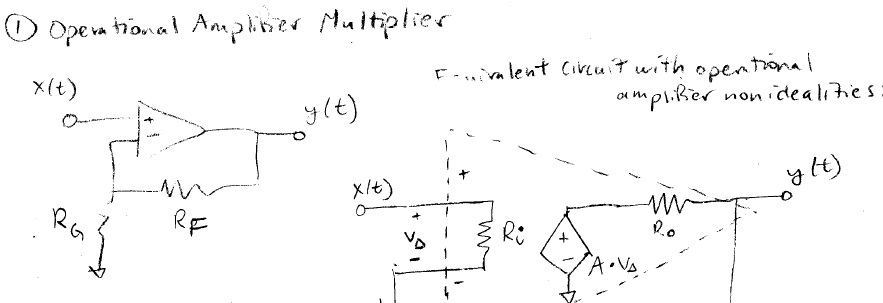 ① Operational Amplifier Multiplier
Equivalent circuit with operational
amplifier nonidealities:
x(t)
+
−
y(t)
R_G
R_F
x(t)
+
V_Δ
−
+
−
R_i
+
−
A·V_Δ
R_o
y(t)